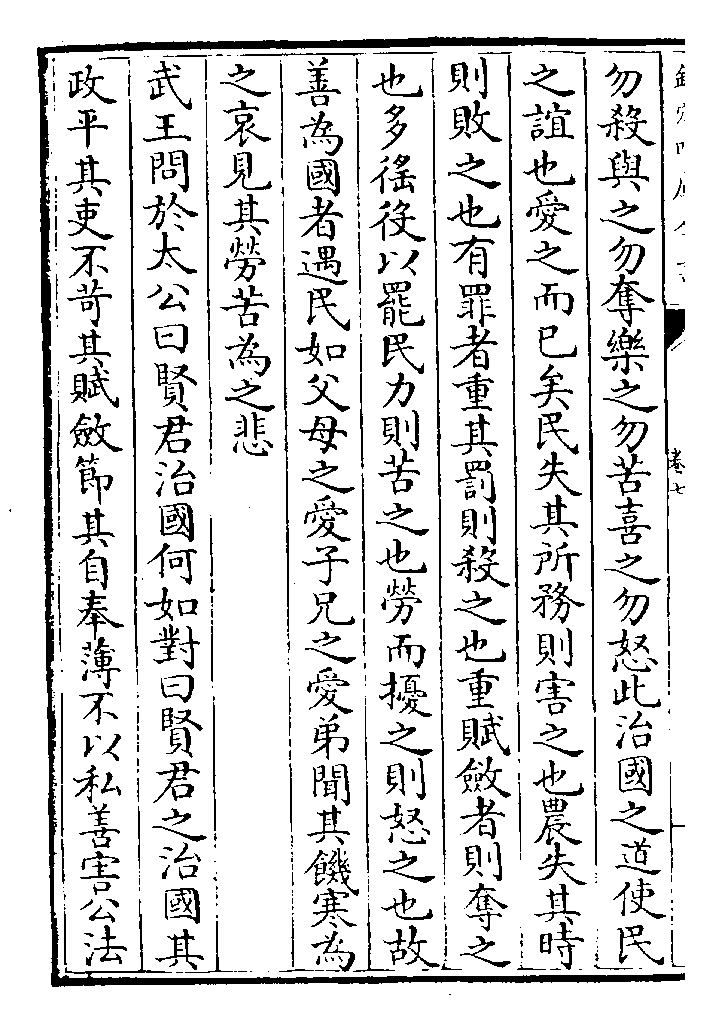 勿殺與之勿奪樂之勿苦喜之勿怒此治國之道使民
之誼也愛之而已矣民失其所務則害之也農失其時
則敗之也有罪者重其罰則殺之也重賦斂者則奪之
也多徭役以罷民力則苦之也勞而擾之則怒之也故
善為國者遇民如父母之愛子兄之愛弟聞其饑寒為
之哀見其勞苦為之悲
武王問於太公曰賢君治國何如對曰賢君之治國其
政平其吏不苛其賦斂節其自奉薄不以私善害公法
卷七